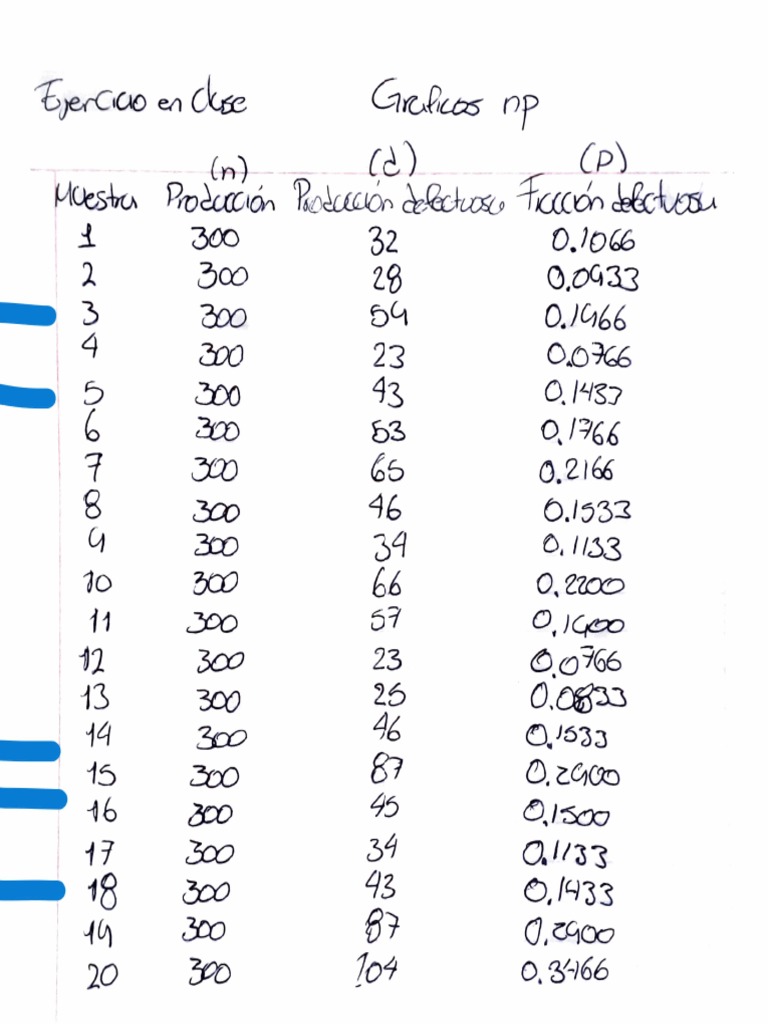 Ejercicio en clase Graficos np
(n) (d) (P)
Muestra Producción Producción defectuosa Fracción defectuosa
1 300 32 0.1066
2 300 28 0.0933
3 300 59 0.1966
4 300 23 0.0766
5 300 43 0.1433
6 300 53 0.1766
7 300 65 0.2166
8 300 46 0.1533
9 300 34 0.1133
10 300 66 0.2200
11 300 57 0.1900
12 300 23 0.0766
13 300 25 0.0833
14 300 46 0.1533
15 300 87 0.2900
16 300 45 0.1500
17 300 34 0.1133
18 300 43 0.1433
19 300 87 0.2900
20 300 104 0.3466